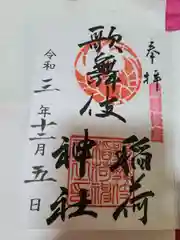 奉拝
歌舞伎
稲荷
神社
令和三年十二月五日